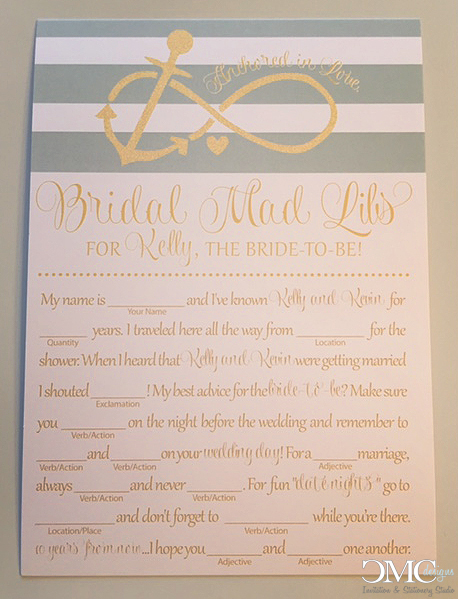 Anchored in Love.
Bridal Mad Libs
FOR Kelly, THE BRIDE-TO-BE!
My name is ____________ and I've known Kelly and Kevin for
Your Name
________ years. I traveled here all the way from ___________ for the
Quantity Location
shower. When I heard that Kelly and Kevin were getting married
I shouted _________! My best advice for the bride-to-be? Make sure
Exclamation
you ___________ on the night before the wedding and remember to
Verb/Action
________ and ________ on your wedding day! For a _______ marriage,
Verb/Action Verb/Action Adjective
always _________ and never _________. For fun "date nights" go to
Verb/Action Verb/Action
____________ and don't forget to _____________ while you're there.
Location/Place Verb/Action
10 years from now...I hope you ________ and ________ one another.
Adjective Adjective
CMC designs
Invitation & Stationery Studio